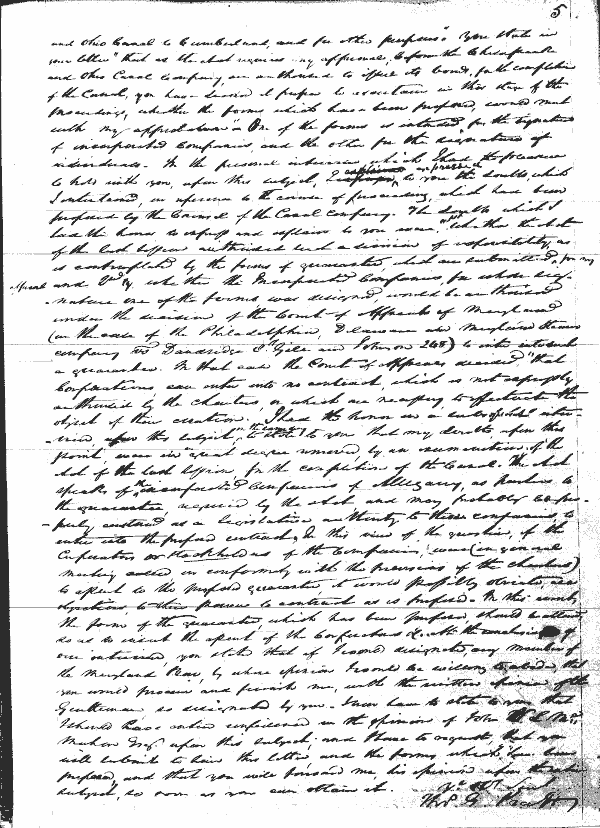 5
and Ohio Canal to Cumberland, and for other purposes" You state in
your letter "that as the act requires my approval, before the Chesapeake
and Ohio Canal Company, are authorized to issue its bonds, for the completion
of the Canal, you have desired I prefer to ascertain in this stage of the
proceedings, whether the forms which has been prepared, would meet
with my approval. One of the forms is intended for the signature
of incorporated Companies, and the other for the signatures of
individuals. In the personal interview, which I had the pleasure
to hold with you, upon this subject, I expressed to you the doubts, which
I entertained, in reference to the course of proceeding, which had been
proposed by the Counsel of the Canal Company. The doubts which I
had the honor to express and explain to you were, 1st Whether the Act
of the last Session authorized such a division of responsibility, as
is contemplated by the forms of guarantee, which are submitted, for my
approval and 2nd whether the Incorporated Companies, for whose sig-
nature one of the forms was designed, would be authorized
under the decision of the Court of Appeals of Maryland
(in the case of the Philadelphia, Delaware and Maryland
company vs Dandridge 8 Gill and Johnson 248) to enter into such
a guarantee. In that case the Court of Appeals decided "that
Corporations can enter into no contract, which is not expressly
authorized by the charters, or which are necessary to effectuate the
object of their creation. I had the honor in a subsequent inter-
view, upon this subject, to state to you that my doubts upon this
point, were in great degree removed, by an examination of the
Act of the last Session, for the completion of the Canal. The Act
speaks of the incorporated Companies of Allegany, as parties to
the guarantee, required by the act and may probably be pro-
perly construed as a Legislative authority to these companies, to
enter into the proposed contract. In this view of the question, if the
Corporators or Stockholders of the Companies, were (in general
meeting called in conformity with the provisions of the charters)
to assent to the proposed guarantee, it would possibly obviate all
objections to their power to contract as is proposed. In this event,
the form of the guarantee, which has been prepared should be altered,
so as to recite the assent of the Corporators &c. At the conclusion of
our interview, you stated that if I would designate, any member of
the Maryland Bar, by whose opinion I would be willing to abide, that
you would procure and furnish me, with the written opinion of the
Gentleman so designated by you. I now have to state to you that
I should have entire confidence in the opinion of John V. L. Mc
Mahon Esqr. upon this subject; and I have to request that you
will submit to him this letter and the forms, which have been
prepared, and that you will forward me, his opinion upon the whole
subject, so soon as you can obtain it.
Thos. G. Pratt